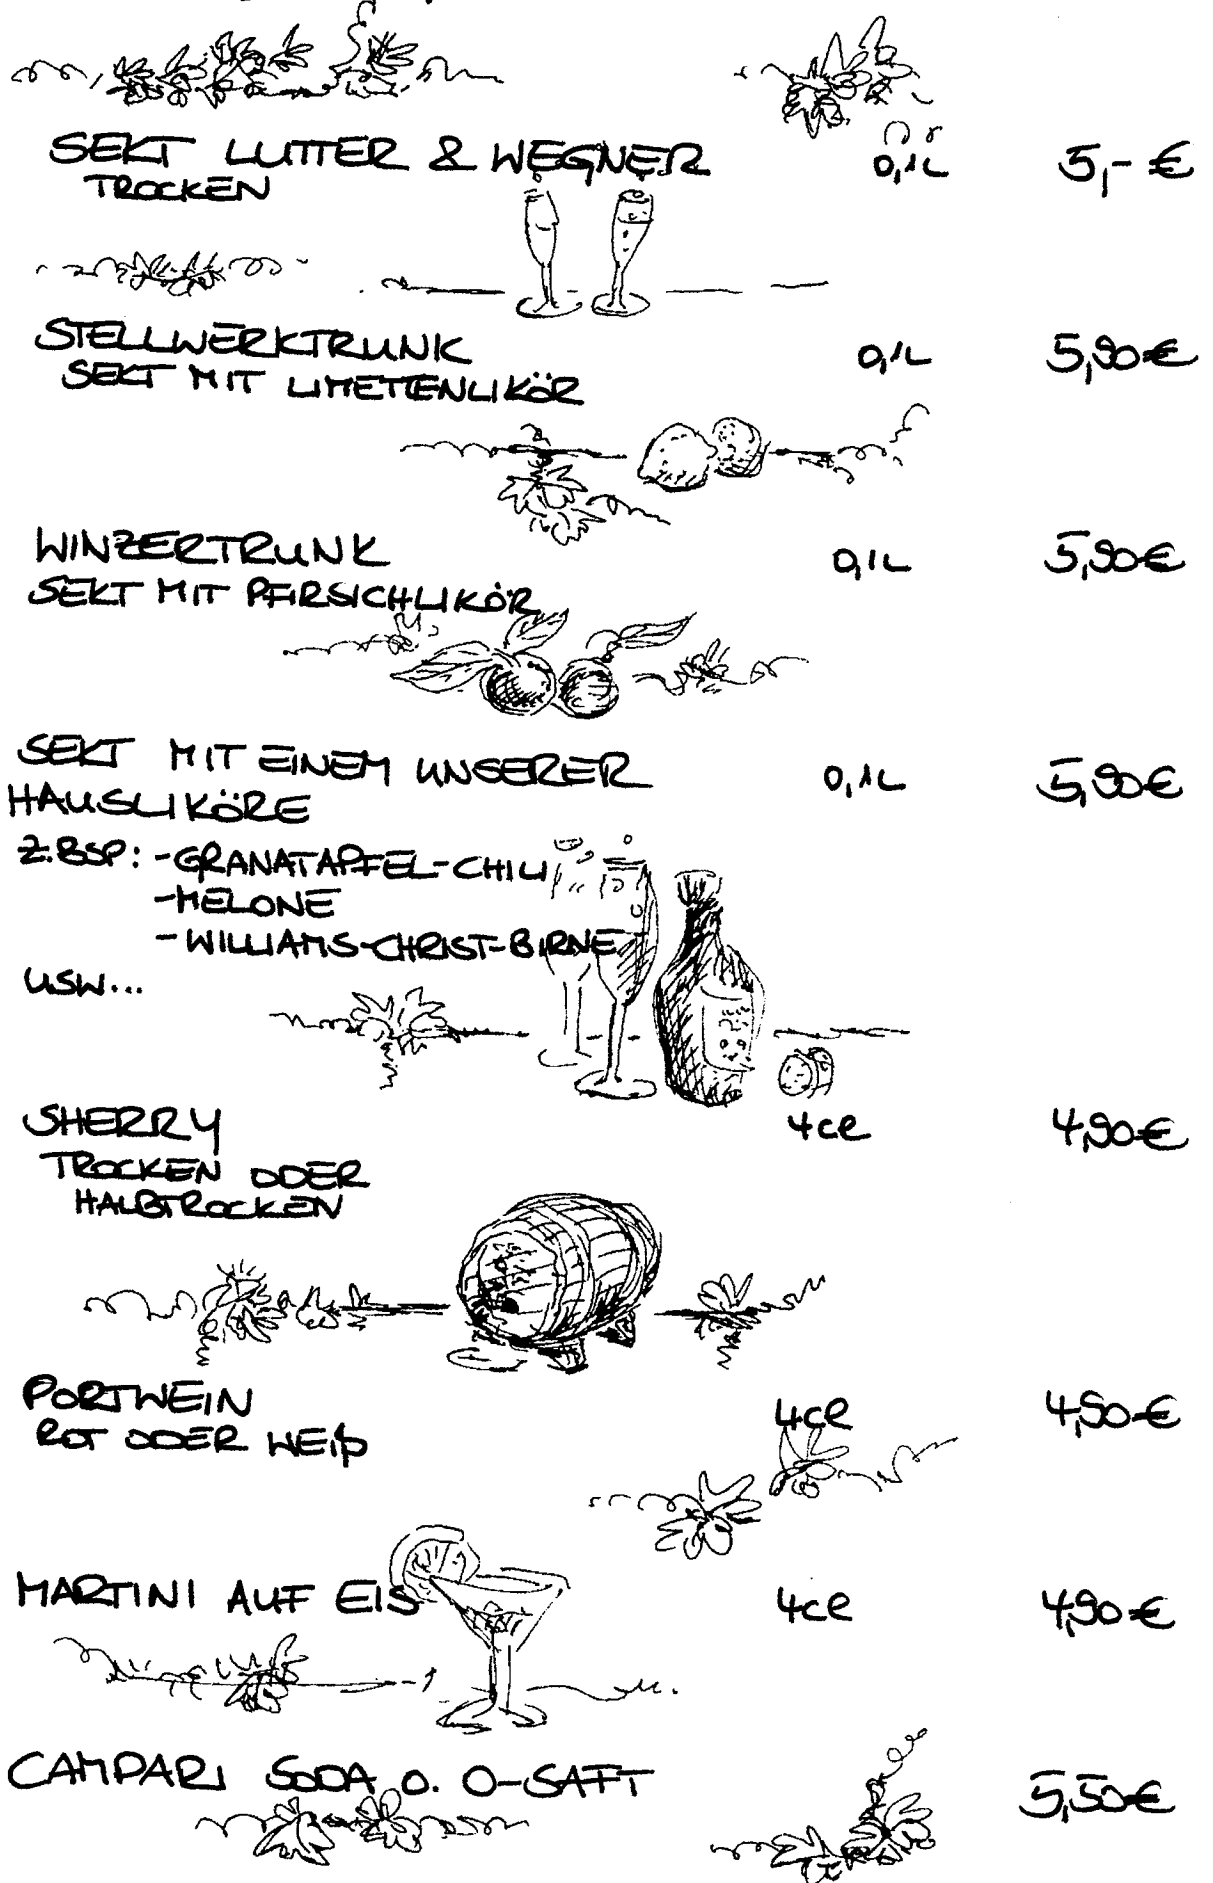 SEKT LUTTER & WEGNER 0,1L 5,- €
TROCKEN
STELLWERKTRUNK 0,1L 5,90 €
SEKT MIT LIMETTENLIKÖR
WINZERTRUNK 0,1L 5,90 €
SEKT MIT PFIRSICHLIKÖR
SEKT MIT EINEM UNSERER 0,1L 5,90 €
HAUSLIKÖRE
Z.BSP: -GRANATAPFEL-CHILI
-MELONE
-WILLIAMS-CHRIST-BIRNE
USW...
SHERRY 4cl 4,90 €
TROCKEN ODER
HALBTROCKEN
PORTWEIN 4cl 4,90 €
ROT ODER WEIß
MARTINI AUF EIS 4cl 4,90 €
CAMPARI SODA O. O-SAFT 5,50 €